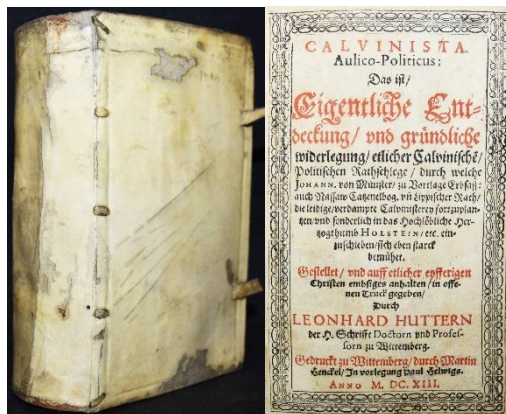 CALVINISTA
Aulico-Politicus:
Das ist/
Eigentliche Ent-
deckung/ vnd gründliche
widerlegung/ etlicher Calvinischẽ/
Politischen Rathschlege/ durch welche
JOHANN. von Münster/ zu Vortlage Erbsass:
auch Nassaw Catzenelbog. vñ Lippischer Rath/
die leidige/ verdampte Calvinisterey fortzupflan-
tzen/ vnd sonderlich in das Hochlöbliche Her-
tzogthumb HOLSTEIN/ etc. ein-
zuschieben/ sich eben starck
bemühet.
Gestellet/ vnd auff etlicher eyfferigen
Christen embsiges anhalten/ in offe-
nen Truck gegeben/
Durch
LEONHARD HUTTERN
der H. Schrifft Doctorn vnd Profes-
sorn zu Wittemberg.
Gedruckt zu Wittemberg/ durch Martin
Henckel/ In vorlegung Paul Helwigs.
ANNO M. DC. XIII.